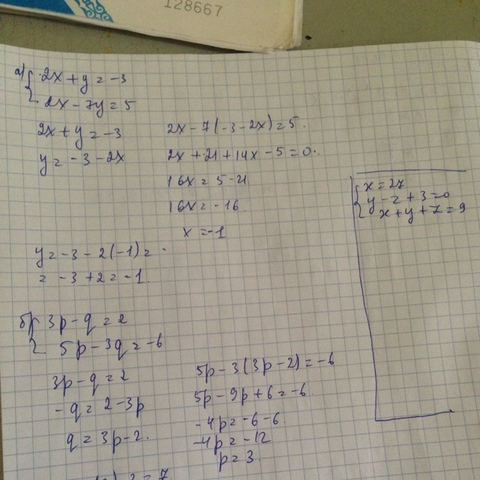 128667
а) { 2x + y = -3
2x - 7y = 5
2x + y = -3
y = -3 - 2x
2x - 7(-3 - 2x) = 5.
2x + 21 + 14x - 5 = 0.
16x = 5 - 21
16x = -16
x = -1
y = -3 - 2(-1) =
= -3 + 2 = -1
{ x = 2z
y - z + 3 = 0
x + y + z = 9
б) { 3p - q = 2
5p - 3q = -6
3p - q = 2
-q = 2 - 3p
q = 3p - 2.
5p - 3(3p - 2) = -6
5p - 9p + 6 = -6
-4p = -6 - 6
-4p = -12
p = 3